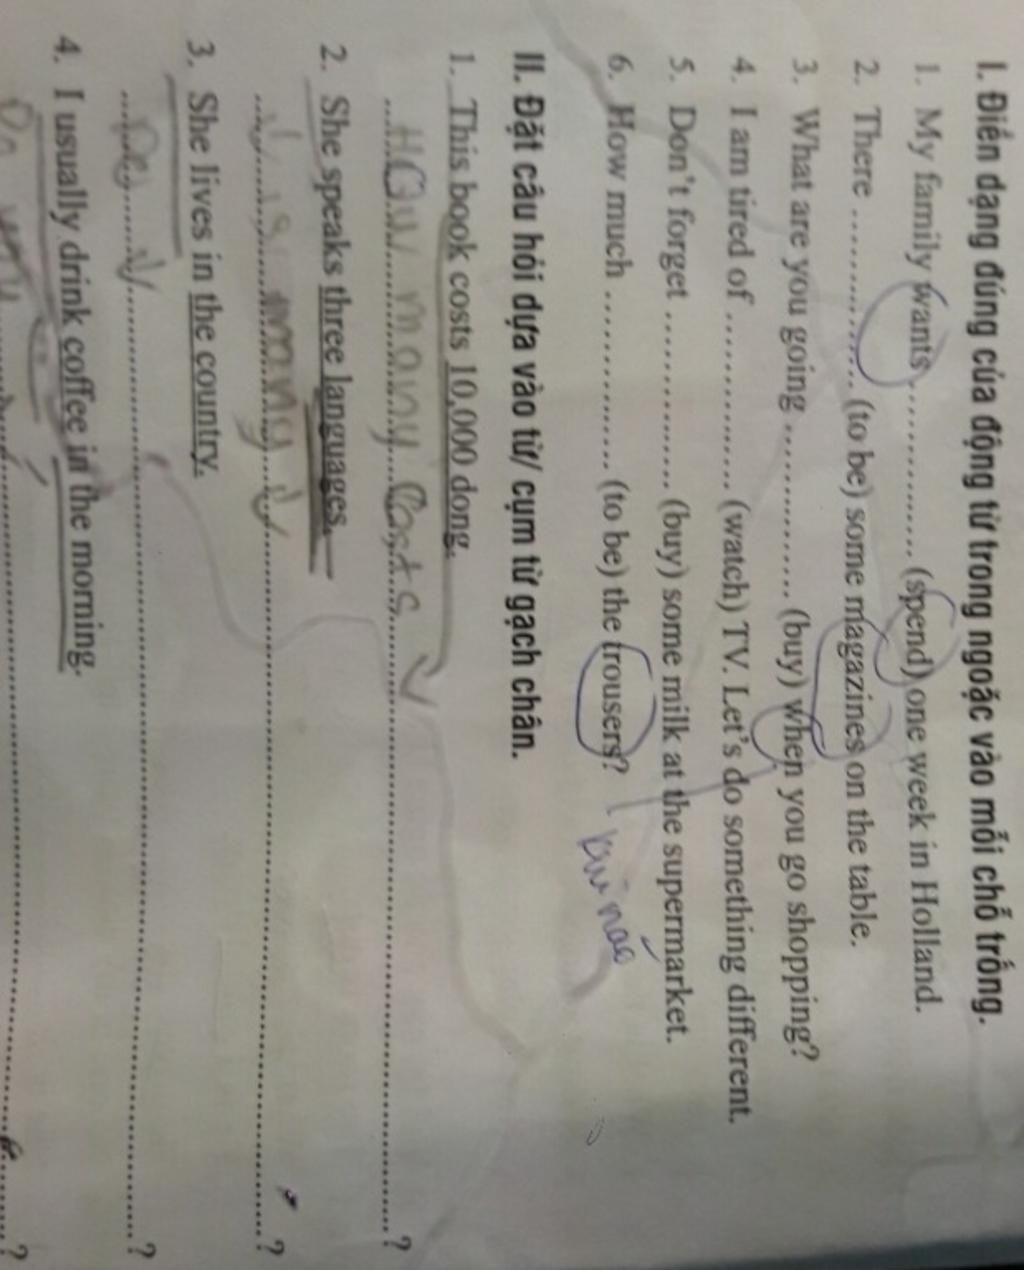 I. Điền dạng đúng của động từ trong ngoặc vào mỗi chỗ trống.
1. My family wants .............. (spend) one week in Holland.
2. There .............. (to be) some magazines on the table.
3. What are you going .............. (buy) when you go shopping?
4. I am tired of .............. (watch) TV. Let's do something different.
5. Don't forget .............. (buy) some milk at the supermarket.
6. How much .............. (to be) the trousers?
II. Đặt câu hỏi dựa vào từ/ cụm từ gạch chân.
1. This book costs 10,000 dong.
How many costs ..............?
2. She speaks three languages.
..............?
3. She lives in the country.
..............?
4. I usually drink coffee in the morning.
..............?